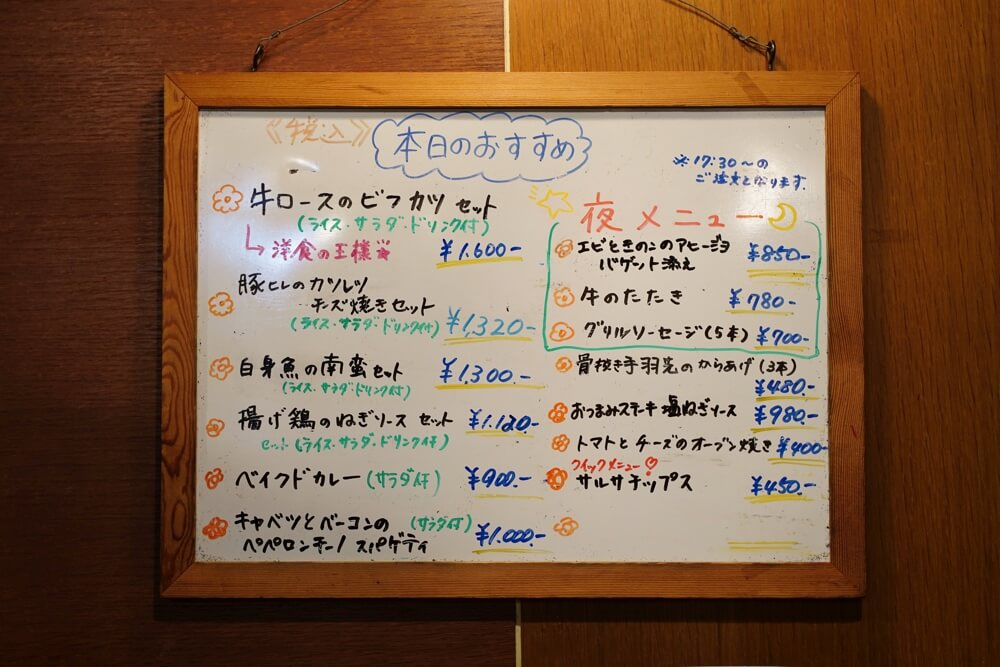 《税込》
本日のおすすめ
牛ロースのビフカツ セット
(ライス・サラダ・ドリンク付)
洋食の王様
¥1.600-
豚ヒレのカツレツ
チーズ焼きセット
(ライス・サラダ・ドリンク付)
¥1,320-
白身魚の南蛮セット
(ライス・サラダ・ドリンク付)
¥1.300.-
揚げ鶏のねぎソース セット
セット(ライス・サラダ・ドリンク付)
¥1.120-
ベイクドカレー(サラダ付)
¥900.-
キャベツとベーコンの (サラダ付)
ペペロンチーノ スパゲティ
¥1.000.-
※17:30~の
ご注文となります.
夜メニュー
エビときのこのアヒージョ
バゲット添え
¥850-
牛のたたき
¥780-
グリルソーセージ(5本)
¥700-
骨抜き手羽先のからあげ(3本)
¥480.-
おつまみステーキ 塩ねぎソース
¥980.-
トマトとチーズのオーブン焼き
¥400-
クイックメニュー!
サルサチップス
¥450.-